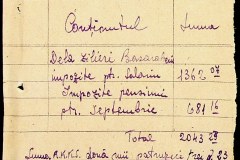 Conținutul Suma
Dela zilieri Basarabeni
impozite pt. salarii 1362 07
Impozite pensiuni
pt. Septembrie 681 16
Total 2043 23
Suma R.K.K.S. două mii patruzeci trei 23